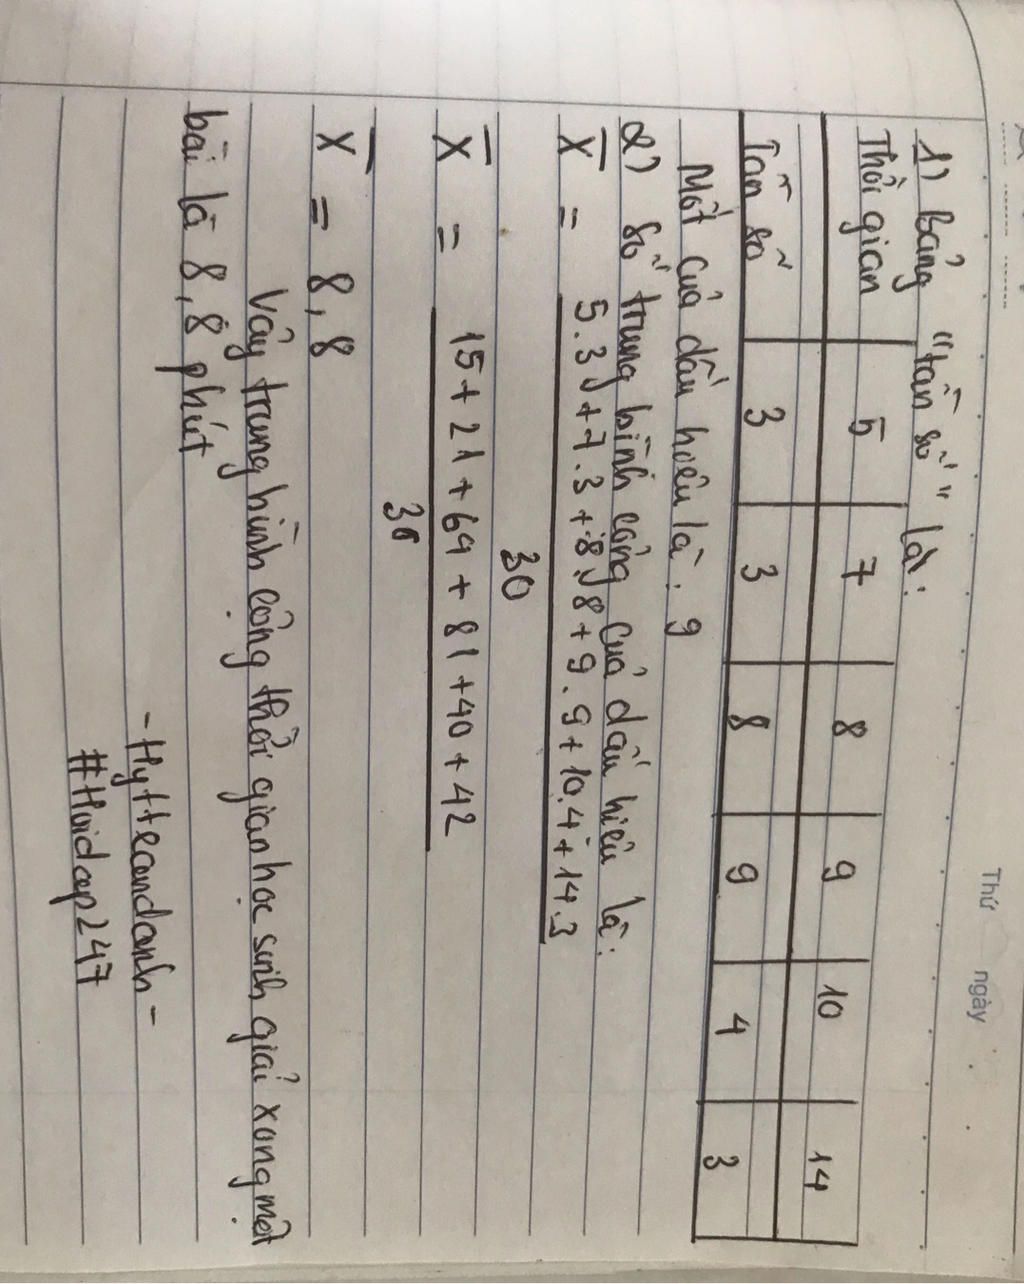 Thứ ngày
1) Bảng "tần số" là:
Thời gian 5 7 8 9 10 14
Tần số 3 3 8 9 4 3
Mốt của dấu hiệu là: 9
2) Số trung bình cộng của dấu hiệu là:
X̄ = 5.3+7.3+8.8+9.9+10.4+14.3
30
X̄ = 15+21+64+81+40+42
30
X̄ = 8,8
Vậy trung bình cộng thời gian học sinh giải xong một
bài là 8,8 phút
-Hytteandanh-
#Hoidap247